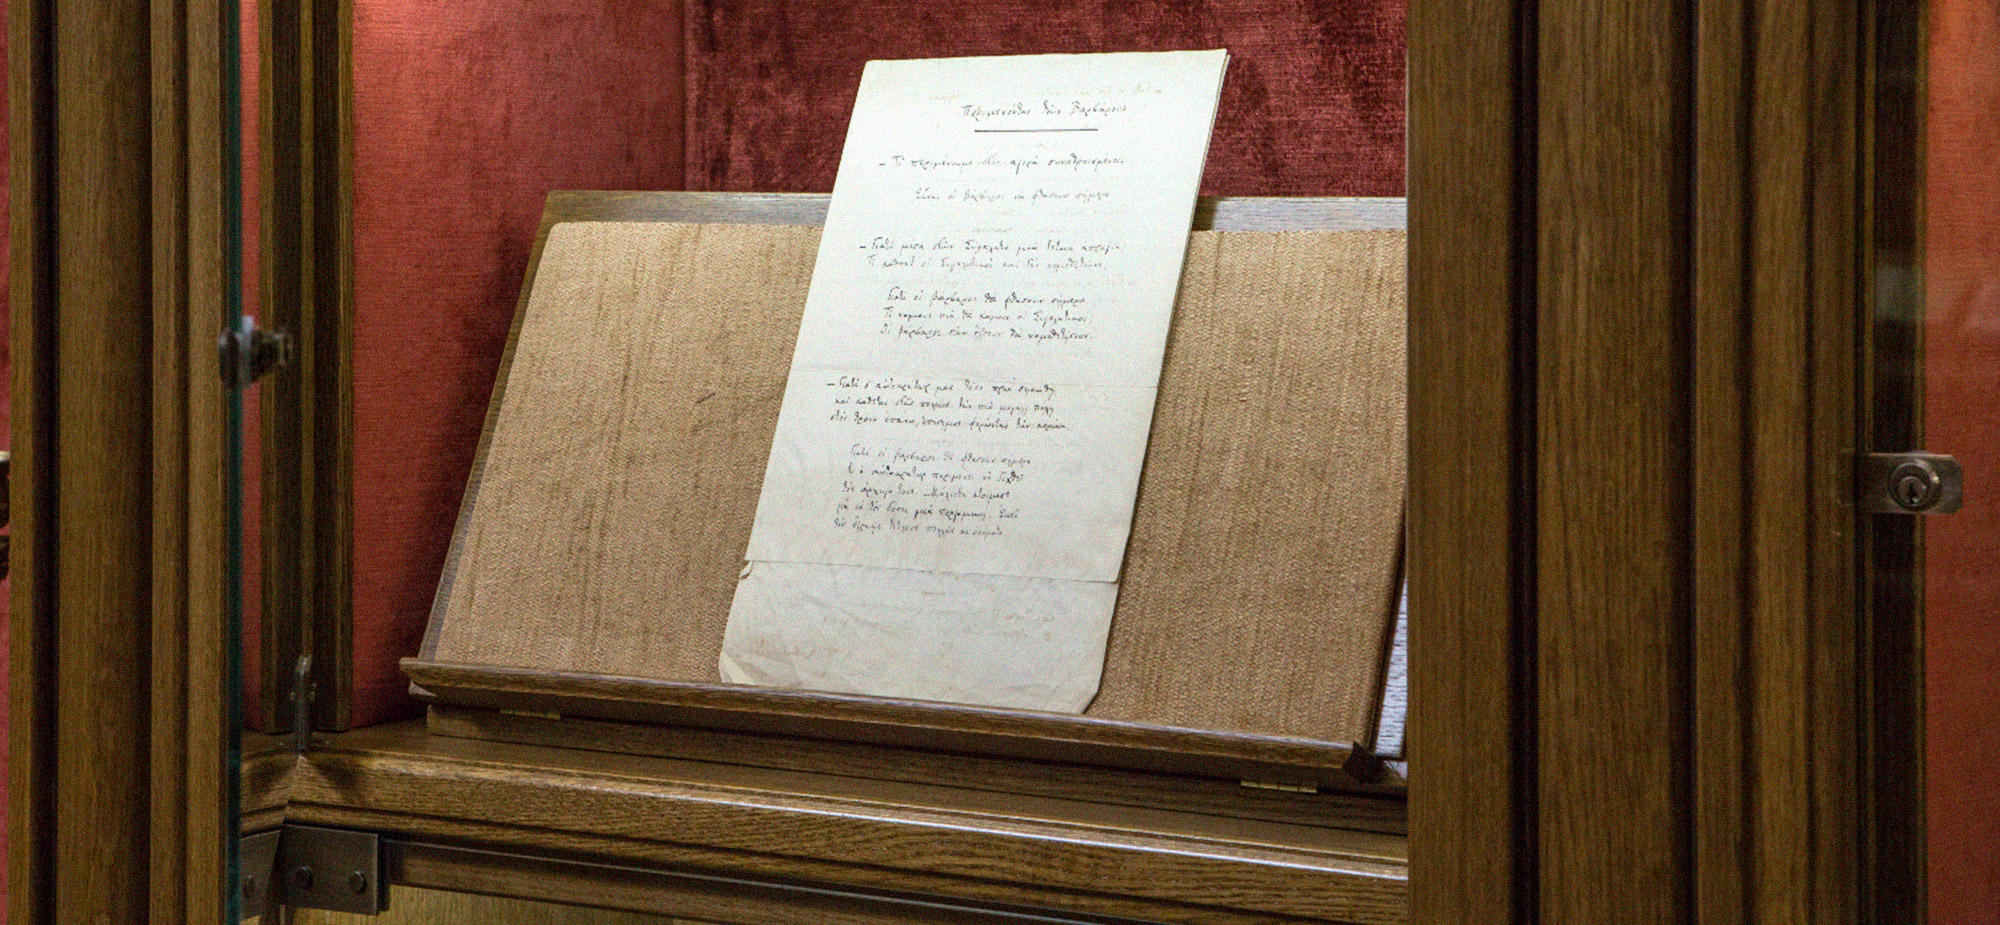 Περιμένοντας τοὺς Βαρβάρους
— Τί περιμένουμε στὴν ἀγορὰ συναθροισμένοι;
Εἶναι οἱ βάρβαροι νὰ φθάσουν σήμερα.
— Γιατί μέσα στὴν Σύγκλητο μιὰ τέτοια ἀπραξία;
Τί κάθοντ' οἱ Συγκλητικοὶ καὶ δὲν νομοθετοῦνε;
Γιατὶ οἱ βάρβαροι θὰ φθάσουν σήμερα.
Τί νόμους πιὰ θὰ κάμουν οἱ Συγκλητικοί;
Οἱ βάρβαροι σὰν ἔλθουν θὰ νομοθετήσουν.
— Γιατί ὁ αὐτοκράτωρ μας τόσο πρωῒ σηκώθη,
καὶ κάθεται στῆς πόλεως τὴν πιὸ μεγάλη πύλη
στὸν θρόνο ἐπάνω, ἐπίσημος, φορώντας τὴν κορώνα;
Γιατὶ οἱ βάρβαροι θὰ φθάσουν σήμερα.
Κι ὁ αὐτοκράτωρ περιμένει νὰ δεχθεῖ
τὸν ἀρχηγό τους. Μάλιστα ἑτοίμασε
γιὰ νὰ τὸν δώσει μιὰ περγαμηνή. Ἐκεῖ
τὸν ἔγραψε τίτλους πολλοὺς κι ὀνόματα.